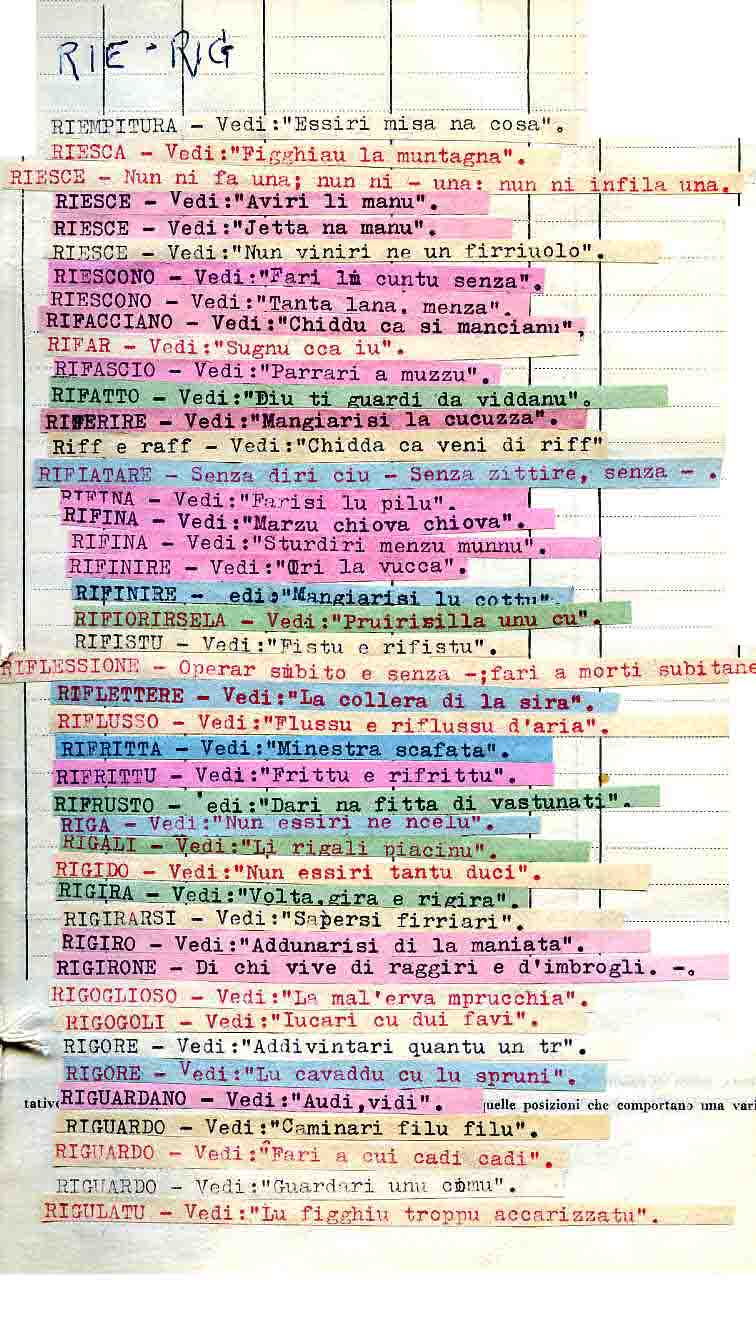 RIE - RIG
RIEMPITURA - Vedi:"Essiri misa na cosa".
RIESCA - Vedi:"Figghiau la muntagna".
RIESCE - Nun ni fa una; nun ni - una: nun ni infila una.
RIESCE - Vedi:"Aviri li manu".
RIESCE - Vedi:"Jetta na manu".
RIESCE - Vedi:"Nun viniri ne un firriuolo".
RIESCONO - Vedi:"Fari li cuntu senza".
RIESCONO - Vedi:"Tanta lana, menza".
RIFACCIANO - Vedi:"Chiddu ca si mancianu",
RIFAR - Vedi:"Sugnu cca iu".
RIFASCIO - Vedi:"Parrari a muzzu".
RIFATTO - Vedi:"Diu ti guardi da viddanu".
RIFERIRE - Vedi:"Mangiarisi la cucuzza".
Riff e raff - Vedi:"Chidda ca veni di riff"
RIFIATARE - Senza diri ciu - Senza zittire, senza - .
RIFINA - Vedi:"Farisi lu pilu".
RIFINA - Vedi:"Marzu chiova chiova".
RIFINA - Vedi:"Sturdiri menzu munnu".
RIFINIRE - Vedi:" la vucca".
RIFINIRE - edi:"Mangiarisi lu cottu".
RIFIORIRSELA - Vedi:"Pruirisilla unu cu".
RIFISTU - Vedi:"Fistu e rifistu".
RIFLESSIONE - Operar subito e senza -;fari a morti subitane
RIFLETTERE - Vedi:"La collera di la sira".
RIFLUSSO - Vedi:"Flussu e riflussu d'aria".
RIFRITTA - Vedi:"Minestra scafata".
RIFRITTU - Vedi:"Frittu e rifrittu".
RIFRUSTO - 'edi:"Dari na fitta di vastunati".
RIGA - Vedi:"Nun essiri ne ncelu".
RIGALI - Vedi:"Li rigali piacinu".
RIGIDO - Vedi:"Nun essiri tantu duci".
RIGIRA - Vedi:"Volta,gira e rigira".
RIGIRARSI - Vedi:"Sapersi firriari".
RIGIRO - Vedi:"Addunarisi di la maniata".
RIGIRONE - Di chi vive di raggiri e d'imbrogli. -.
RIGOGLIOSO - Vedi:"La mal'erva mprucchia".
RIGOGOLI - Vedi:"Iucari cu dui favi".
RIGORE - Vedi:"Addivintari quantu un tr".
RIGORE - Vedi:"Lu cavaddu cu lu spruni".
tativ RIGUARDANO - Vedi:"Audi,vidi". quelle posizioni che comportano una vari
RIGUARDO - Vedi:"Caminari filu filu".
RIGUARDO - Vedi:"Fari a cui cadi cadi".
RIGUARDO - Vedi:"Guardari unu comu".
RIGULATU - Vedi:"Lu figghiu troppu accarizzatu".